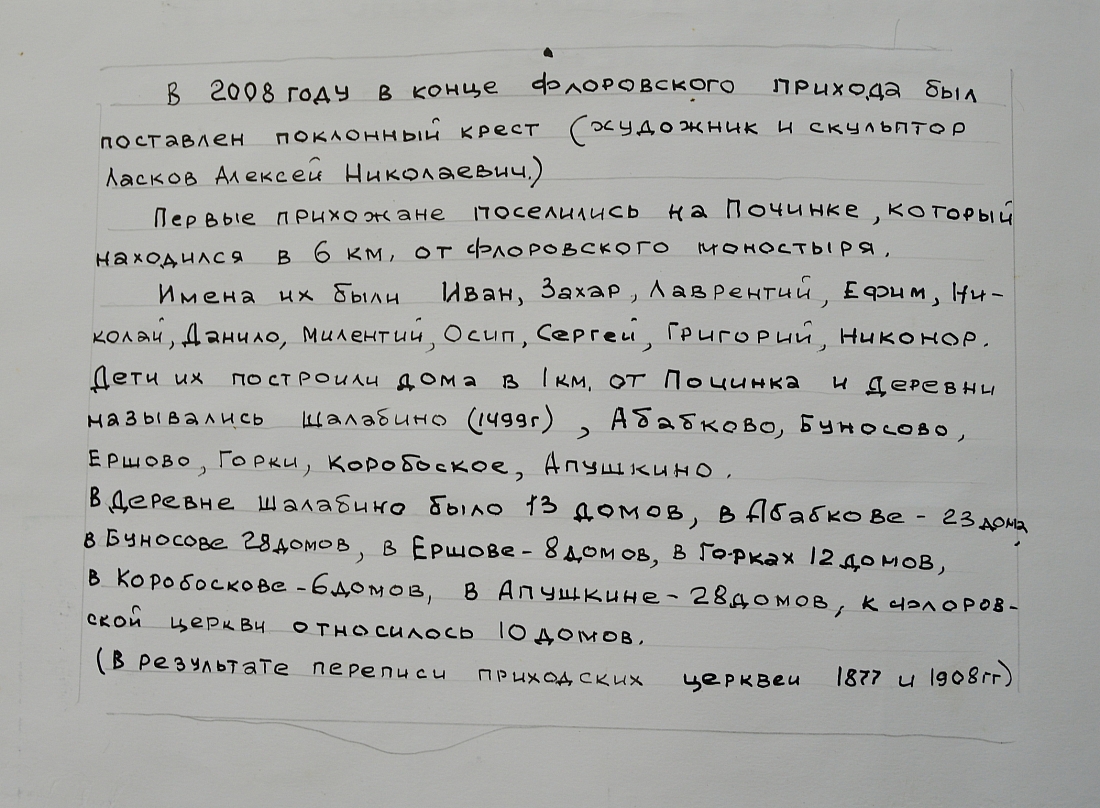 В 2008 году в конце Флоровского прихода был
поставлен поклонный крест (художник и скульптор
Ласков Алексей Николаевич.)
Первые прихожане поселились на Починке, который
находился в 6 км, от Флоровского моностыря.
Имена их были Иван, Захар, Лаврентий, Ефим, Ни-
колай, Данило, Милентий, Осип, Сергей, Григорий, Никонор.
Дети их построили дома в 1 км. от Починка и деревни
назывались Шалабино (1499г), Абабково, Буносово,
Ершово, Горки, Коробоское, Апушкино.
В деревне Шалабино было 13 домов, в Абабкове - 23 дома,
в Буносове 28 домов, в Ершове - 8 домов, в Горках 12 домов,
в Коробоскове - 6 домов, в Апушкине - 28 домов, к Флоров-
ской церкви относилось 10 домов.
(В результате переписи приходских церквей 1877 и 1908гг)